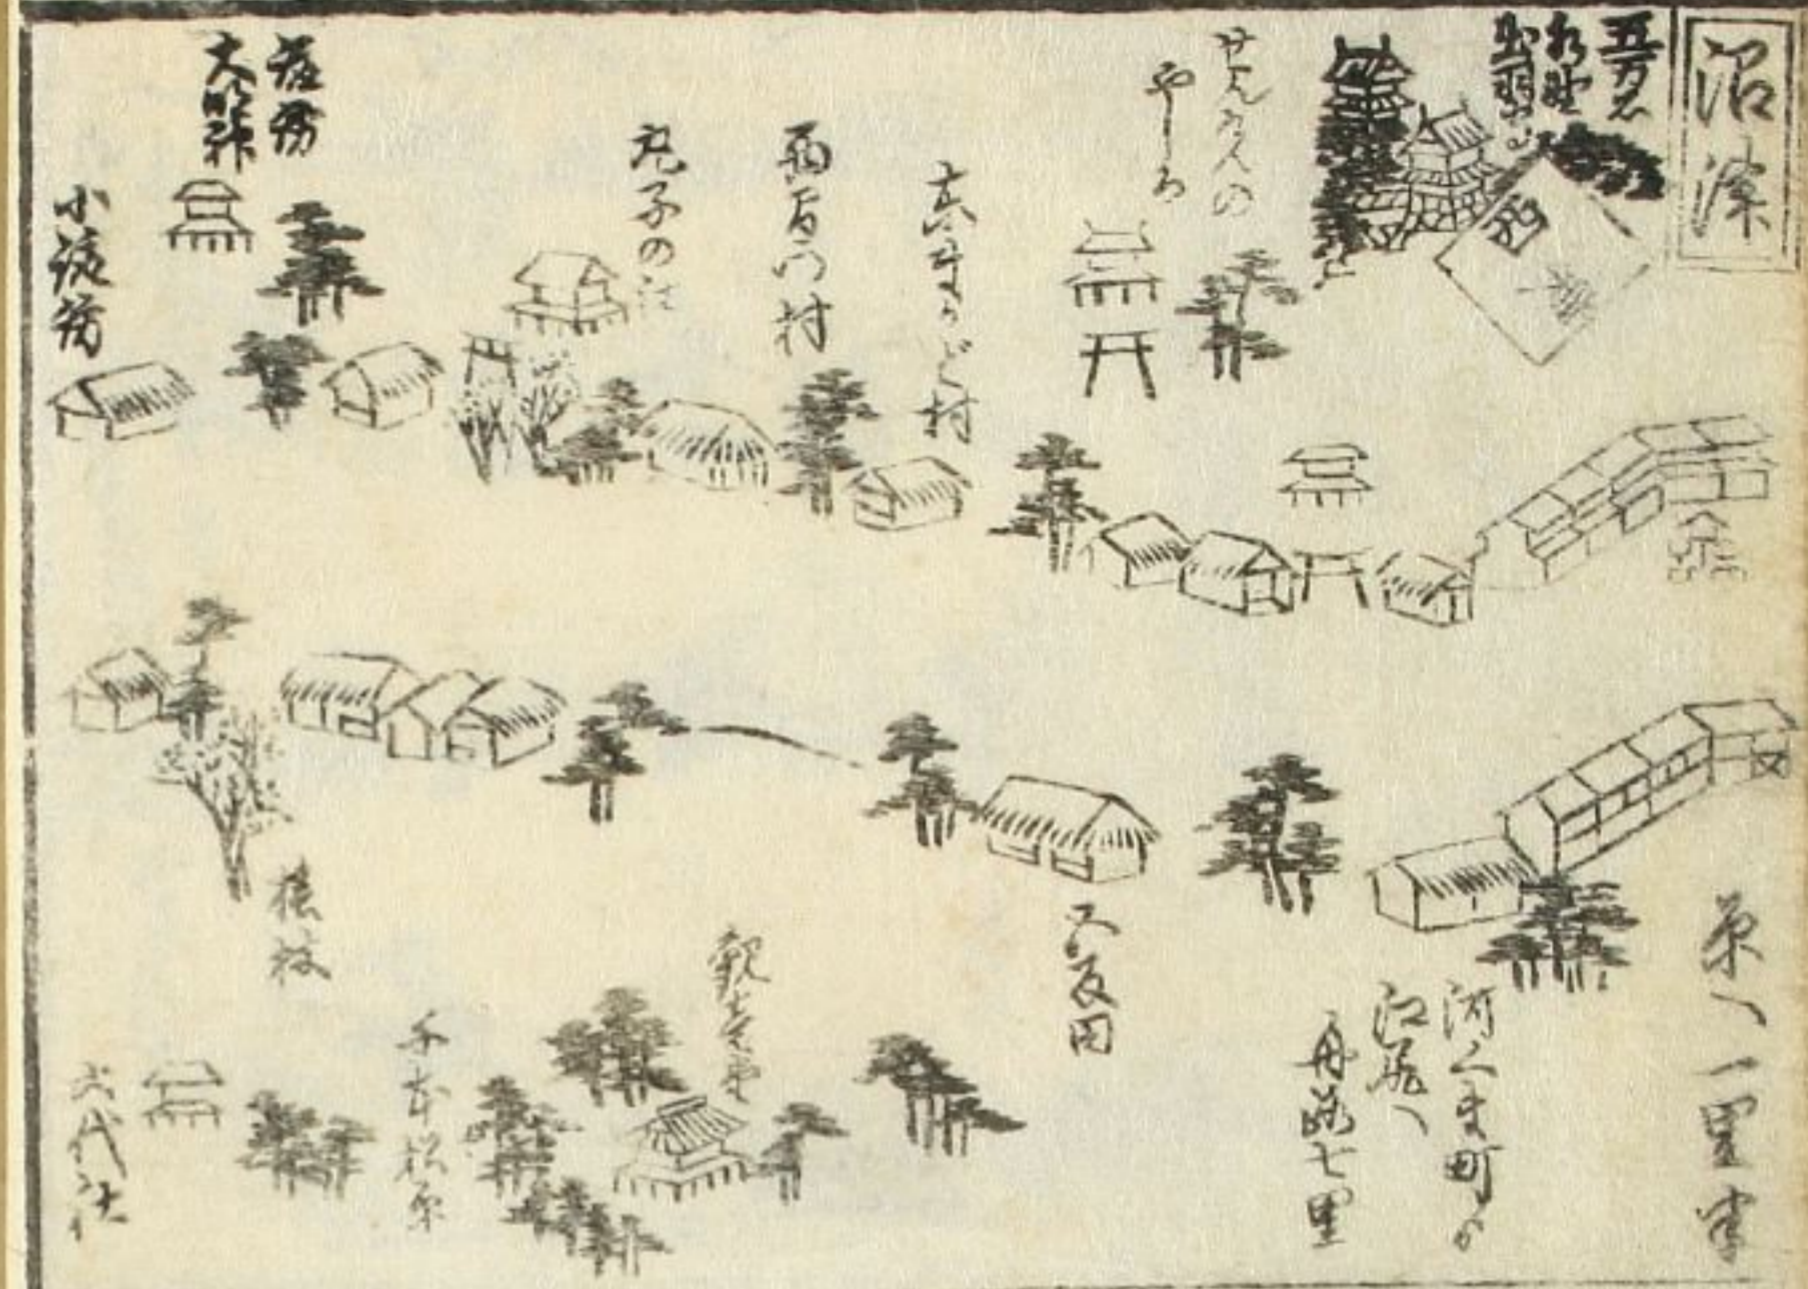 沼津
五万石
水野
出羽守
せんげんの
やしろ
高まつど村
西間門村
丸子の社
諏訪
大明神
小諏訪
原へ一里半
河くま町ゟ
江尻へ
舟路七里
大反田
観音堂
千本松原
六代社